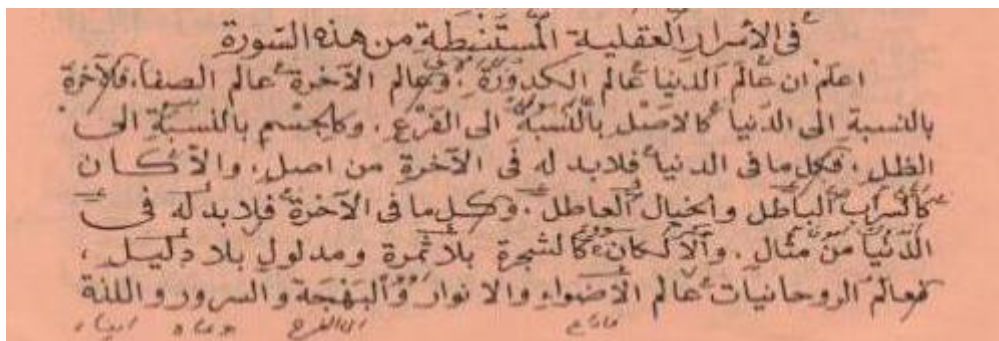 فى الأسرار العقلية المستنبطة من هذه السورة
اعلم ان عالم الدنيا عالم الكدورة، وعالم الآخرة عالم الصفا، فالآخرة
بالنسبة الى الدنيا كالاصل بالنسبة الى الفرع، وكالجسم بالنسبة الى
الظل، فكل ما فى الدنيا فلابد له فى الآخرة من اصل، والا كان
كالسراب الباطل والخيال العاطل، وكل ما فى الآخرة فلابد له فى
الدنيا من مثال، والا لكان كالشجرة بلا ثمرة ومدلول بلا دليل،
فعالم الروحانيات عالم الاضواء والانوار والبهجة والسرور واللذة